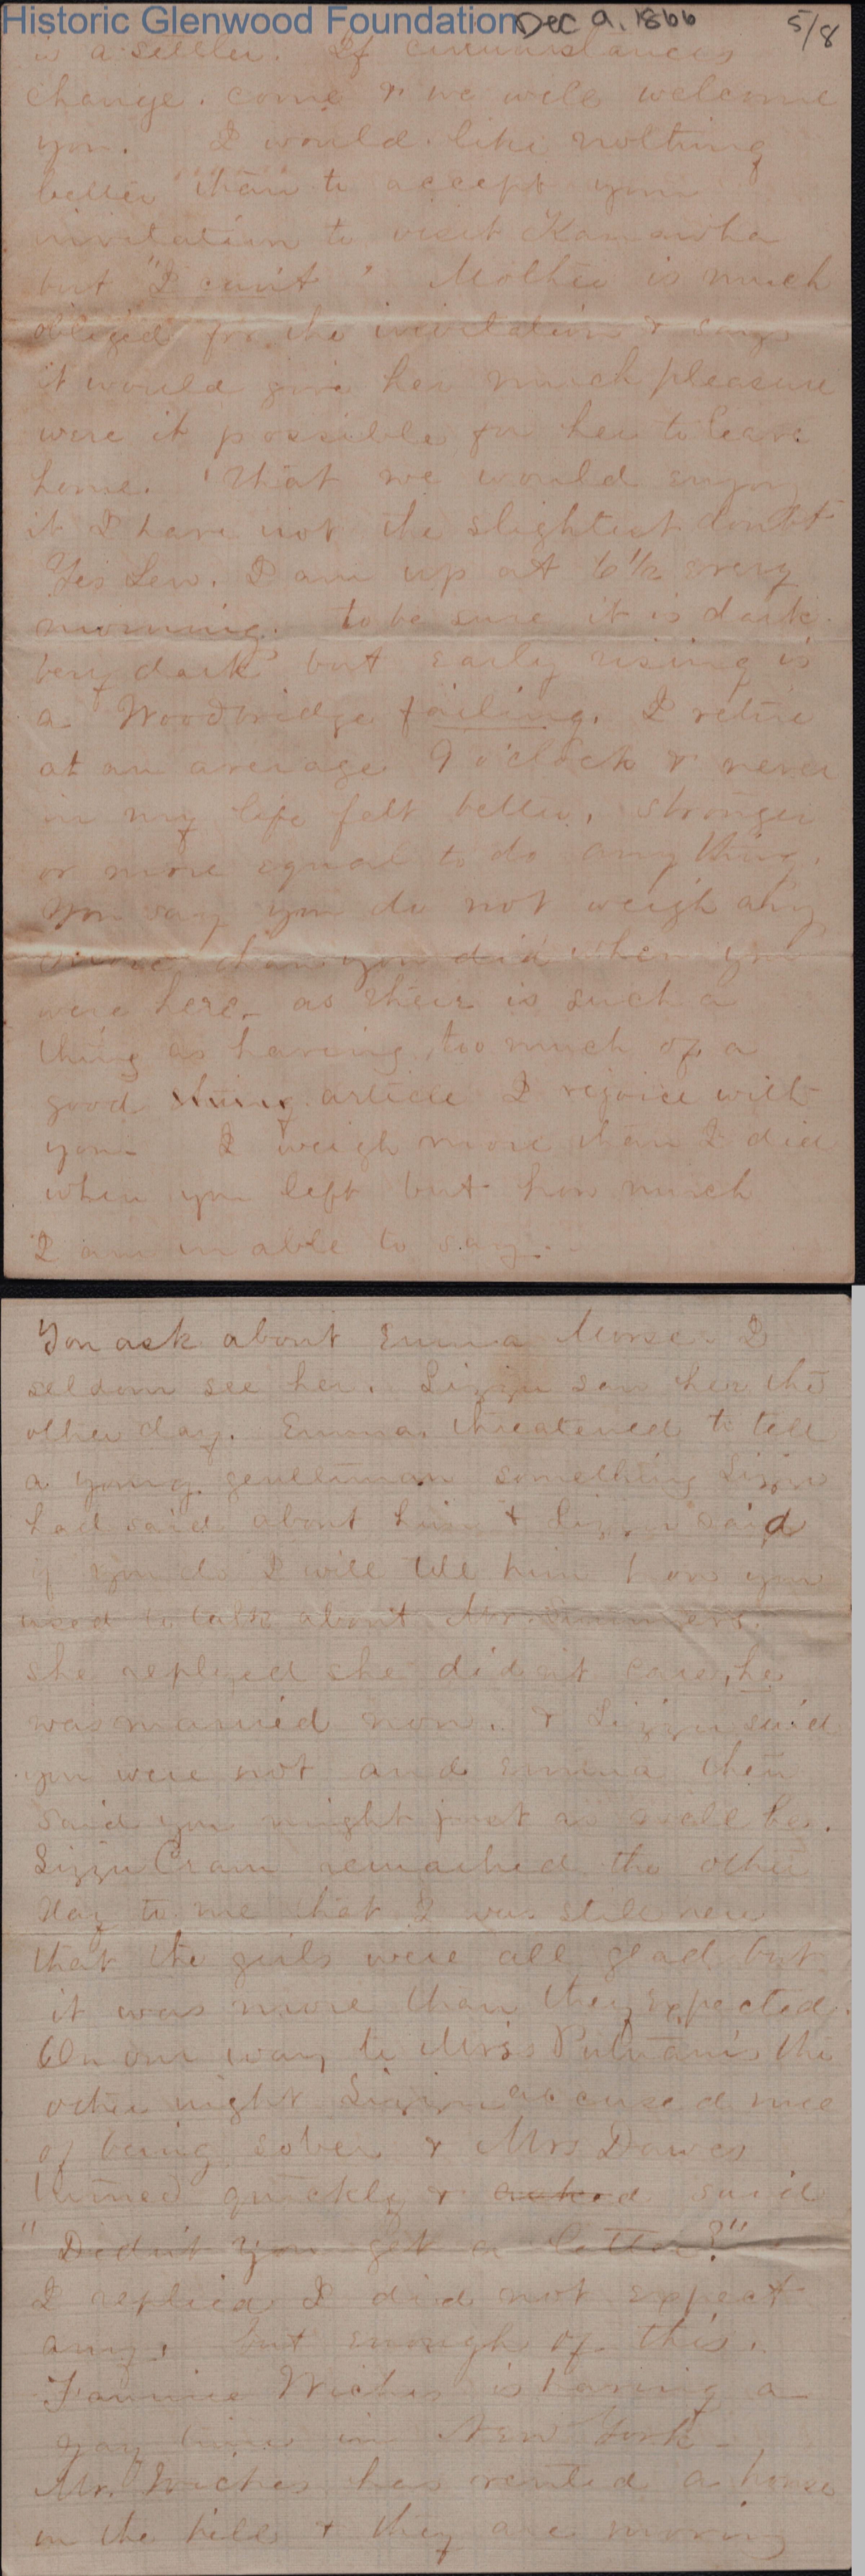 Historic Glenwood Foundation
Dec 9, 1866
5/8
is a settler. If circumstances
change. come & we will welcome
you. I would like nothing
better than to accept your
invitation to visit Kanawha
but "I can't" Mother is much
obliged for the invitation & says
it would give her much pleasure
were it possible for her to leave
home. That we would enjoy
it I have not the slightest doubt
Yes Lew. I am up at 6 1/2 every
morning. to be sure it is dark.
very dark but early rising is
a Woodbridge failing. I retire
at an average 9 o'clock & never
in my life felt better, stronger
or more equal to do any thing.
You say you do not weigh any
more than you did when you
were here – as their is such a
thing as having too much of a
good thing article I rejoice with
you – I weigh more than I did
when you left but how much
I am unable to say. –
You ask about Emma Morse – I
seldom see her. Lizzie saw her the
other day. Emma threatened to tell
a young gentleman something Lizzie
had said about him & Lizzie said
if you do I will tell him how you
used to talk about Mr.
she replyed she did'nt care, he
was married now. & Lizzie said
you were not and Emma then
said you might just as well be.
Lizzie Cram remarked the other
day to me that I was still now
that the girls were all glad but
it was more than they expected.
On our way to Mrs Putnam's the
other night Lizzie accused me
of being sober & Mrs Dawes
turned quickly & asked said
"Did'nt you get a letter?"
I replied I did not expect
any. but enough of this.
Fannie Wiches is having a
gay time in New York –
Mr. Wiches has rented a house
on the hill & they are moving